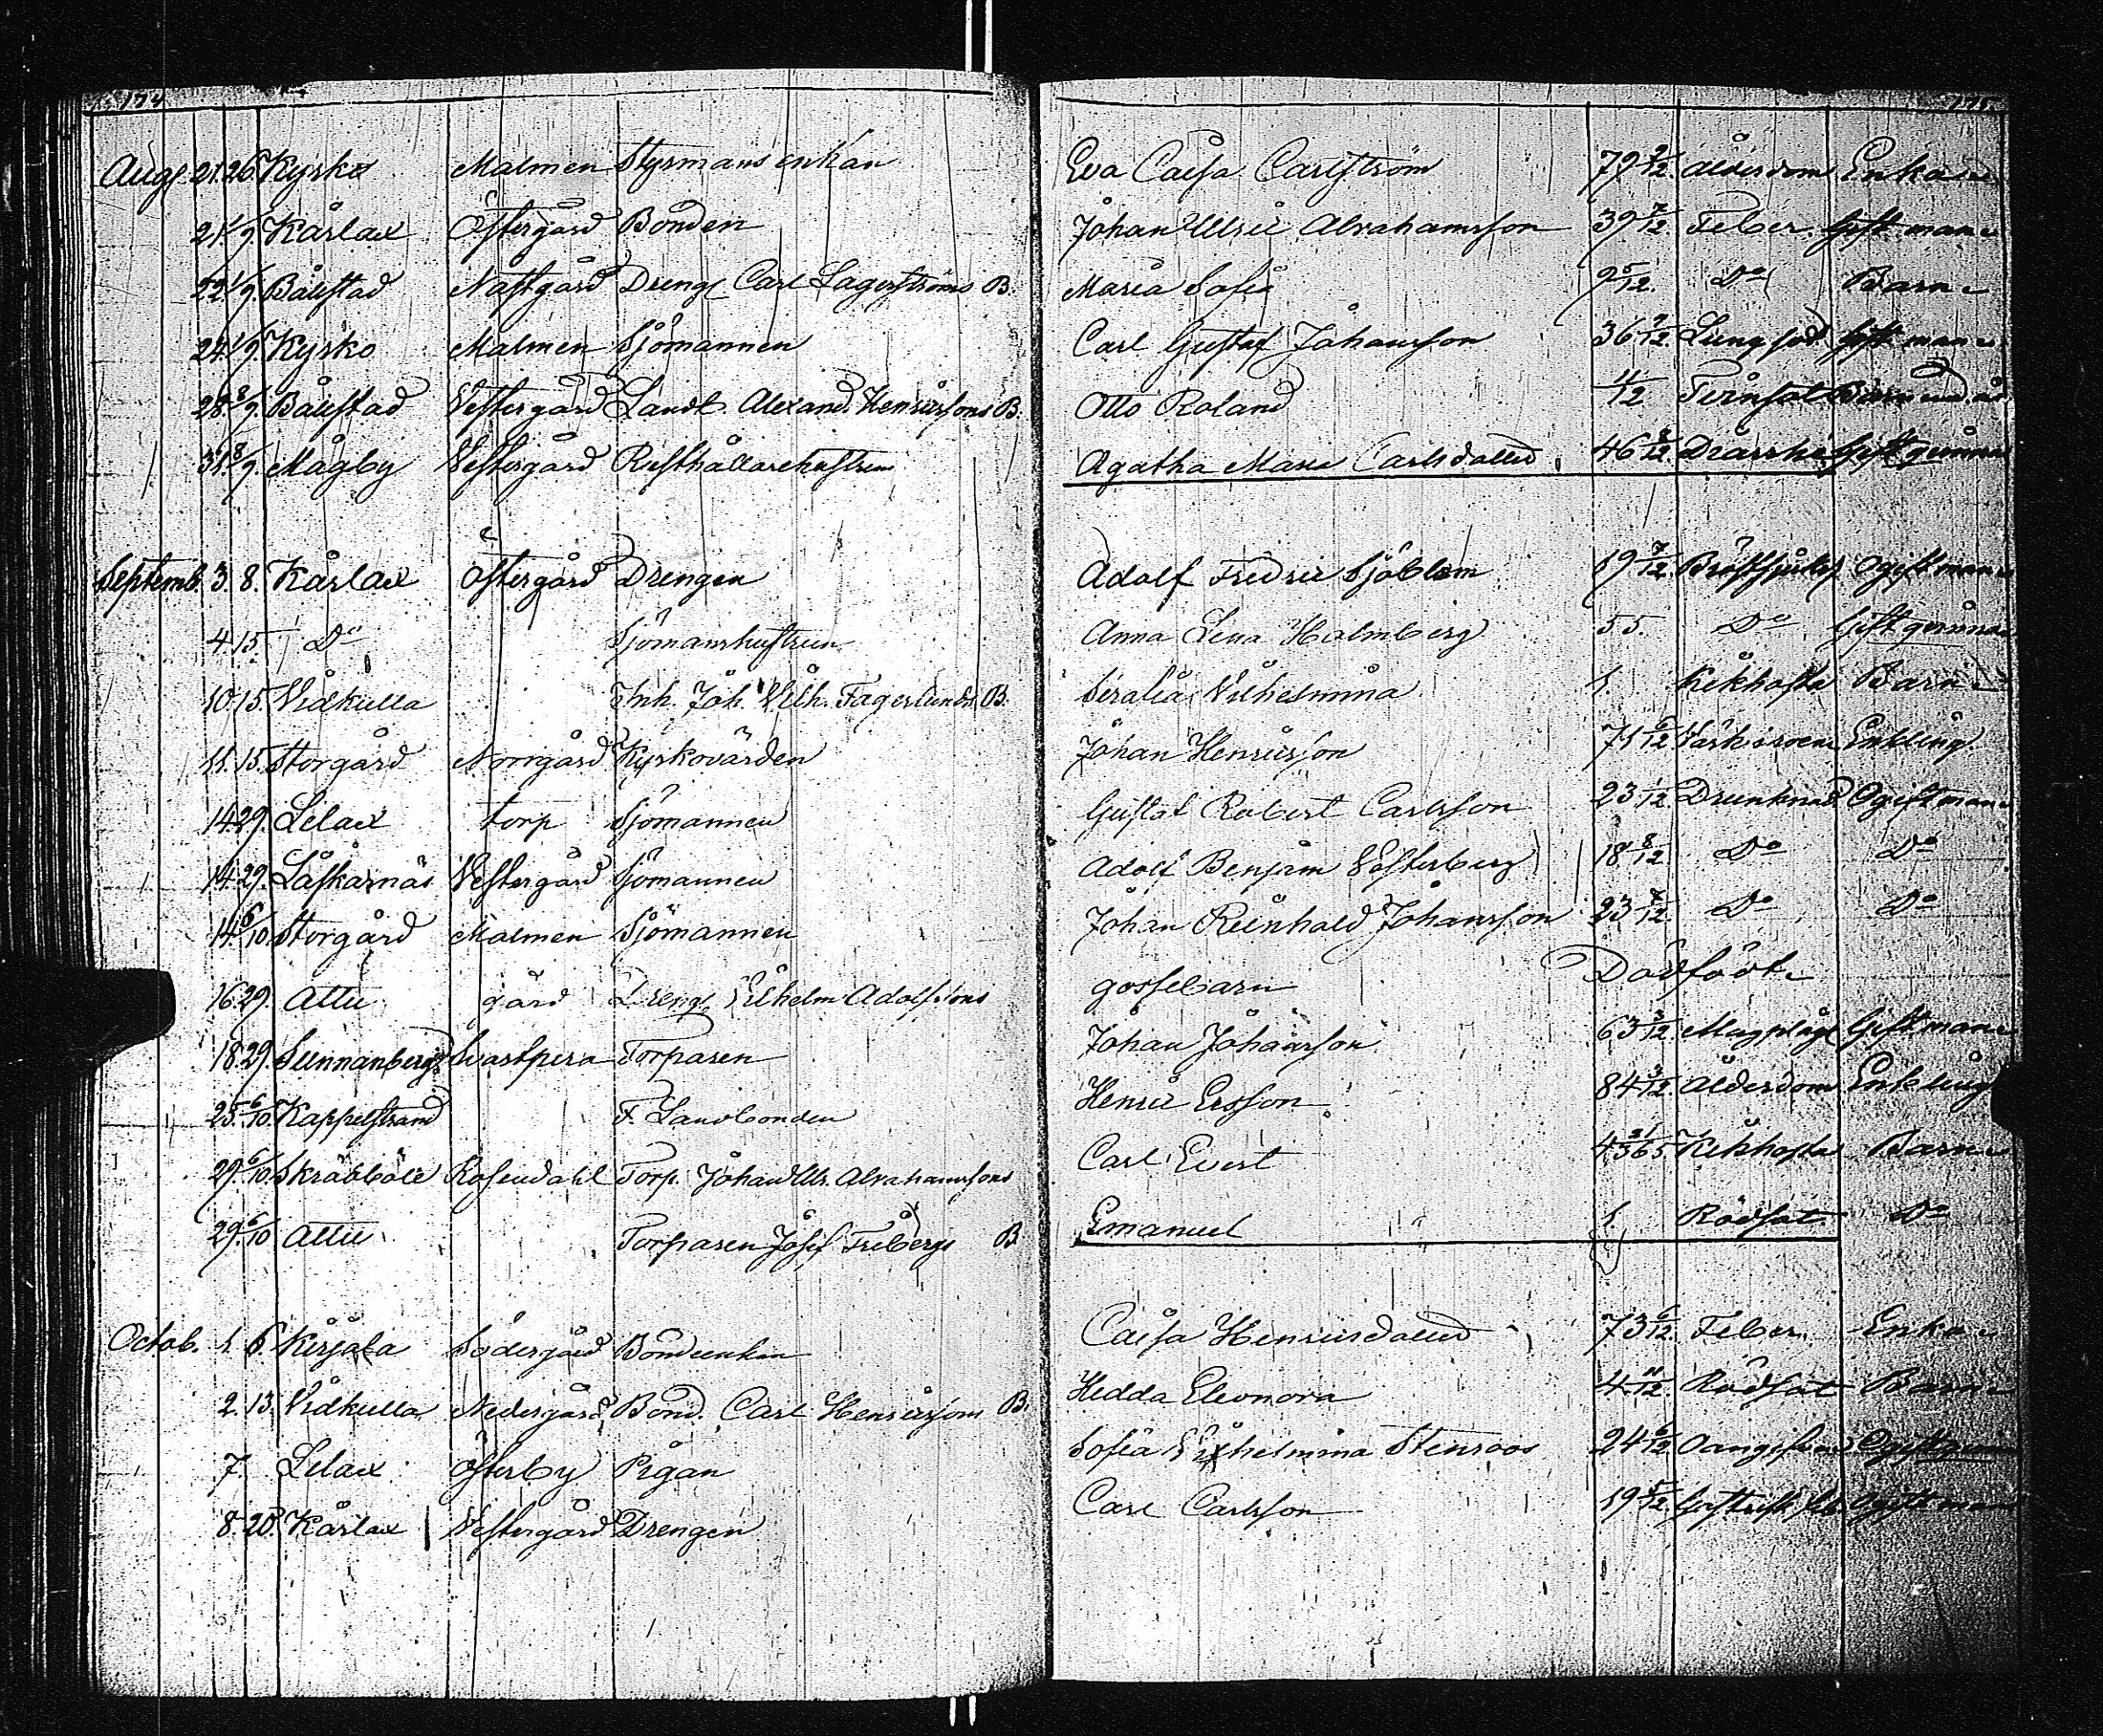 174
175
Aug. 21. 26. Kyrko Malmen Styrmans enkan Eva Caisa Carlström 79 9/12. Ålderdom Enka
21. 1/9. Kårlax Östergård Bonden Johan Ulric Abrahamsson 39 7/12. Feber. Gift man
22. 1/9. Båustad Nästgård Dreng. Carl Lagerströms B. Maria Sofia 9 5/12. Do Barn
24. 1/9. Kyrko Malmen Sjömannen Carl Gustaf Johansson 36 9/12. Lungsot Gift man
28. 8/9. Båustad Vestergård Landb. Alexand. Henricssons B. Otto Roland 4/12 Tvinsot Barn
31. 8/9. Mågby Vestergård Rusthållarehustrun Agatha Maria Carlsdotter 46 8/12. Diarrhé Gift qvinna
Septemb. 3. 8. Kårlax Östergård Drengen Adolf Fredric Sjöblom 19 7/12. Bröstsjukd. Ogift man
4. 15. Do Sjömanshustrun Anna Lena Holmberg 55. Do Gift qvinna
10. 15. Vidkulla Inh. Joh. Vilh. Fagerlunds B. Serafia Vilhelmina 1. Kikhosta Barn
11. 15. Storgård Norrgård Kyrkovärden Johan Henricsson 71 6/12 Enkling
14. 29. Lilax torp Sjömannen Gustaf Robert Carlsson 23 1/12. Drunknad Ogift man
14. 29. Låskarnäs Vestergård Sjömannen Adolf Benjam Vesterberg 18 8/12. Do Do
14. 6/10. Storgård Malmen Sjömannen Johan Reinhold Johansson 23 7/12. Do Do
16. 29. Attu gård Dreng. Vilhelm Adolfssons gossebarn Dödfödt
18. 29. Sunnanberg Svartpera Torparen Johan Johansson 63 3/12. Magplåga Gift man
25. 6/10. Kappelstrand F. Landbonden Henric Ersson 84 3/12. Ålderdom Enkling
29. 6/10. Skräbböle Rosendahl Torp. Johan Ulr. Abrahamssons Carl Evert 4 21/365. Kikhosta Barn
29. 6/10 Attu Torparen Josef Fribergs B Emanuel 1. Rödsot Do
Octob. 1. 6. Kirjala Södergård Bondenkan Caisa Henricsdotter 73 6/12. Feber. Enka
2. 13. Vidkulla Nedergård Bond. Carl Henricssons B. Hedda Eleonora 4 11/12. Rödsot Barn
7. Lilax Österby Pigan Sofia Vilhelmina Stenroos 24 6/12. Oangifven Ogift
8. 20. Kårlax Vestergård Drengen Carl Carlsson 19 5/12. Gastrisk feb. Ogift man